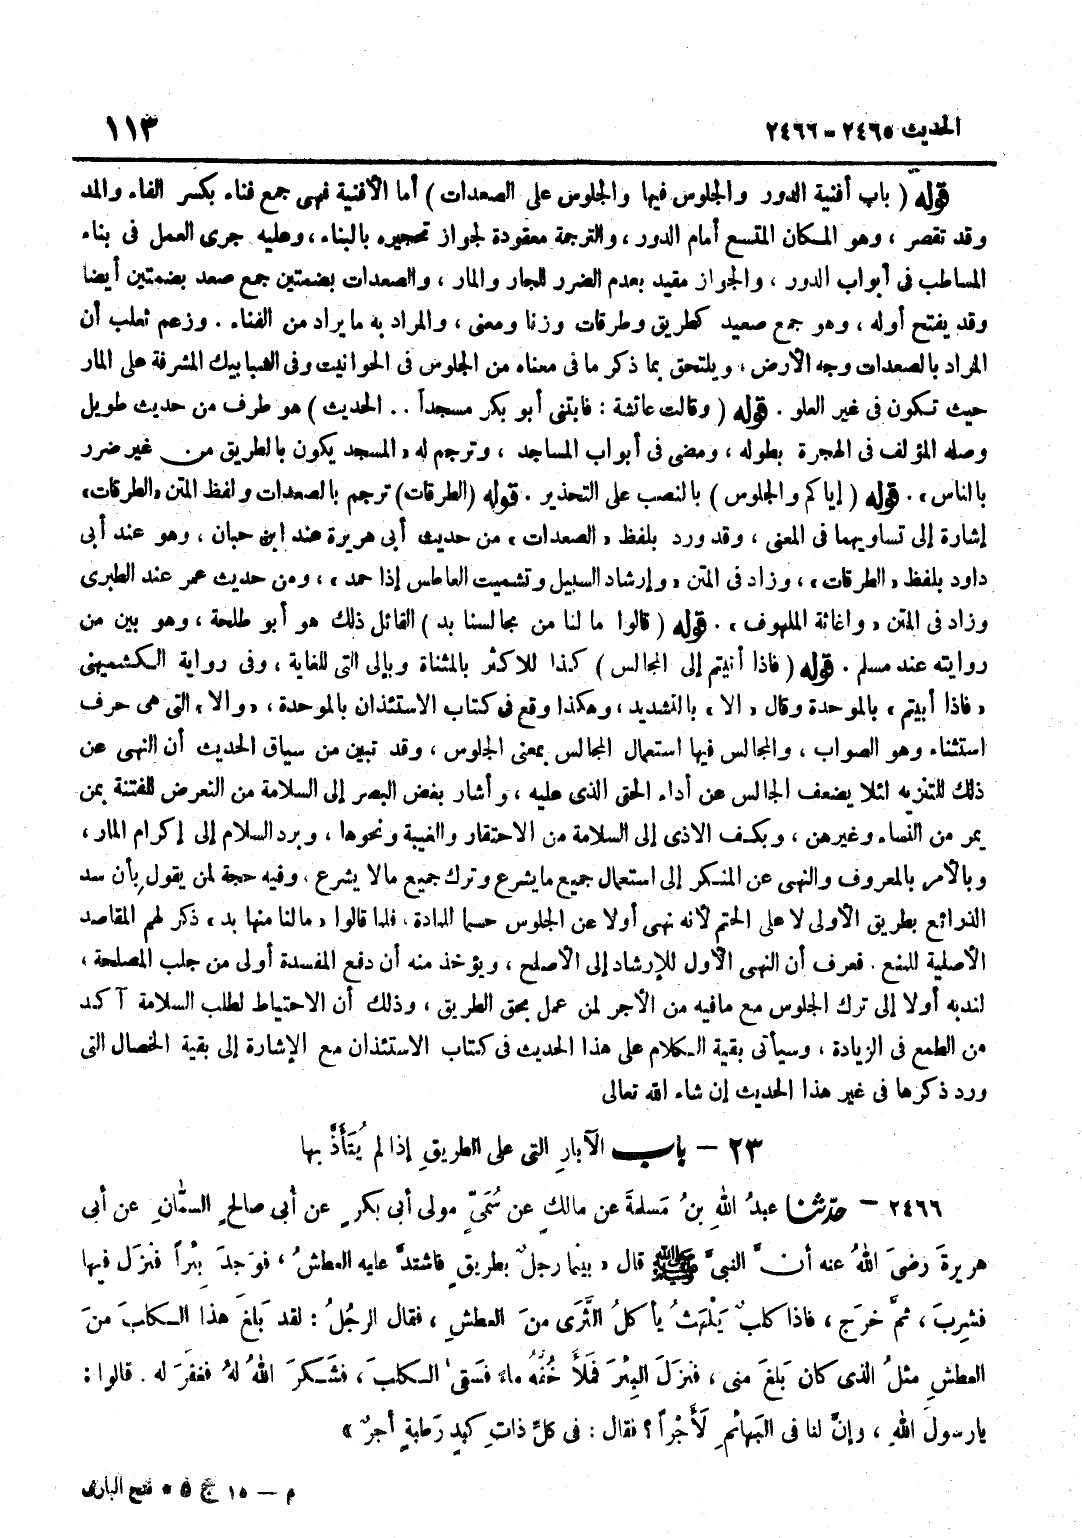 الحديث ٢٤٦٥ - ٢٤٦٦
١١٣
قوله ( باب أفنية الدور والجلوس فيها والجلوس على الصعدات ) أما الأفنية فهى جمع فناء بكسر الفاء والمد
وقد تقصر ، وهو المكان المتسع أمام الدور ، والترجمة معقودة لجواز تحجيره بالبناء ، وعليه جرى العمل فى بناء
المساطب فى أبواب الدور ، والجواز مقيد بعدم الضرر للجار والمار ، والصعدات بضمتين جمع صعد بضمتين أيضا
وقد يفتح أوله ، وهو جمع صعيد كطريق وطرقات وزنا ومعنى ، والمراد به ما يراد من الفناء . وزعم ثعلب أن
المراد بالصعدات وجه الأرض ، ويلتحق بما ذكر ما فى معناه من الجلوس فى الحوانيت وفى الشبابيك المشرفة على المار
حيث تكون فى غير العلو . قوله ( وقالت عائشة : فابتنى أبو بكر مسجداً . . الحديث ) هو طرف من حديث طويل
وصله المؤلف فى الهجرة بطوله ، ومضى فى أبواب المساجد ، وترجم له « المسجد يكون بالطريق من غير ضرر
بالناس » . قوله ( إياكم والجلوس ) بالنصب على التحذير . قوله (الطرقات) ترجم بالصعدات ولفظ المتن «الطرقات»
إشارة إلى تساويهما فى المعنى ، وقد ورد بلفظ « الصعدات » من حديث أبى هريرة عند ابن حبان ، وهو عند أبى
داود بلفظ « الطرقات » ، وزاد فى المتن « وإرشاد السبيل وتشميت العاطس إذا حمد » ، ومن حديث عمر عند الطبرى
وزاد فى المتن « وإغاثة الملهوف » . قوله ( قالوا ما لنا من مجالسنا بد ) القائل ذلك هو أبو طلحة ، وهو بين من
روايته عند مسلم . قوله ( فاذا أتيتم إلى المجالس ) كذا للاكثر بالمثناة وبإلى التى للغاية ، وفى رواية الكشميهنى
« فاذا أبيتم » بالموحدة وقال « الا » بالتشديد ، وهكذا وقع فى كتاب الاستئذان بالموحدة ، « والا » التى هى حرف
استثناء وهو الصواب ، والمجالس فيها استعمال المجالس بمعنى الجلوس ، وقد تبين من سياق الحديث أن النهى عن
ذلك للتنزيه لئلا يضعف الجالس عن أداء الحق الذى عليه ، وأشار بغض البصر إلى السلامة من التعرض للفتنة بمن
يمر من النساء وغيرهن ، وبكف الاذى إلى السلامة من الاحتقار والغيبة ونحوها ، وبرد السلام إلى إكرام المار ،
وبالأمر بالمعروف والنهى عن المنكر إلى استعمال جميع ما يشرع وترك جميع مالا يشرع . وفيه حجة لمن يقول بأن سد
الذرائع بطريق الأولى لا على الحتم لأنه نهى أولا عن الجلوس حسما للمادة ، فلما قالوا « مالنا منها بد » ذكر لهم المقاصد
الأصلية للمنع . فعرف أن النهى الأول للإرشاد إلى الأصلح ، ويؤخذ منه أن دفع المفسدة أولى من جلب المصلحة ،
لندبه أولا إلى ترك الجلوس مع مافيه من الأجر لمن عمل بحق الطريق ، وذلك أن الاحتياط لطلب السلامة آكد
من الطمع فى الزيادة ، وسيأتى بقية الكلام على هذا الحديث فى كتاب الاستئذان مع الإشارة إلى بقية الخصال التى
ورد ذكرها فى غير هذا الحديث إن شاء الله تعالى
٢٣ - باب الآبارِ التى على الطريقِ إذا لم يُتَأَذَّ بها
٢٤٦٦ - حدّثنا عبدُ اللهِ بنُ مَسلمةَ عن مالكٍ عن سُمَىٍّ مولى أبى بكرٍ عن أبى صالحٍ السمّانِ عن أبى
هريرةَ رَضىَ اللهُ عنه أنَّ النبىَّ ﷺ قال « بينما رجلٌ بطريقٍ فاشتدَّ عليه العطشُ ، فوَجدَ بِئراً فنزَل فيها
فشرِبَ ، ثمَّ خرَج ، فاذا كلبٌ يَلْهَثُ يأكلُ الثَّرَى منَ العطشِ ، فقال الرجُلُ : لقد بَلغَ هذا الكلبَ منَ
العطشِ مثلُ الذى كان بَلغَ منى ، فنزَلَ البِئرَ فمَلأَ خُفَّهُ ماءً فسَقىٰ الكلبَ ، فشَكرَ اللهُ لهُ فغفَرَ له . قالوا :
يارسولَ اللهِ ، وإنَّ لنا فى البَهائمِ لَأَجْراً ؟ فقال : فى كلِّ ذاتِ كبدٍ رَطبةٍ أجرٌ »
م — ١٥ ج ٥ * فتح البارى